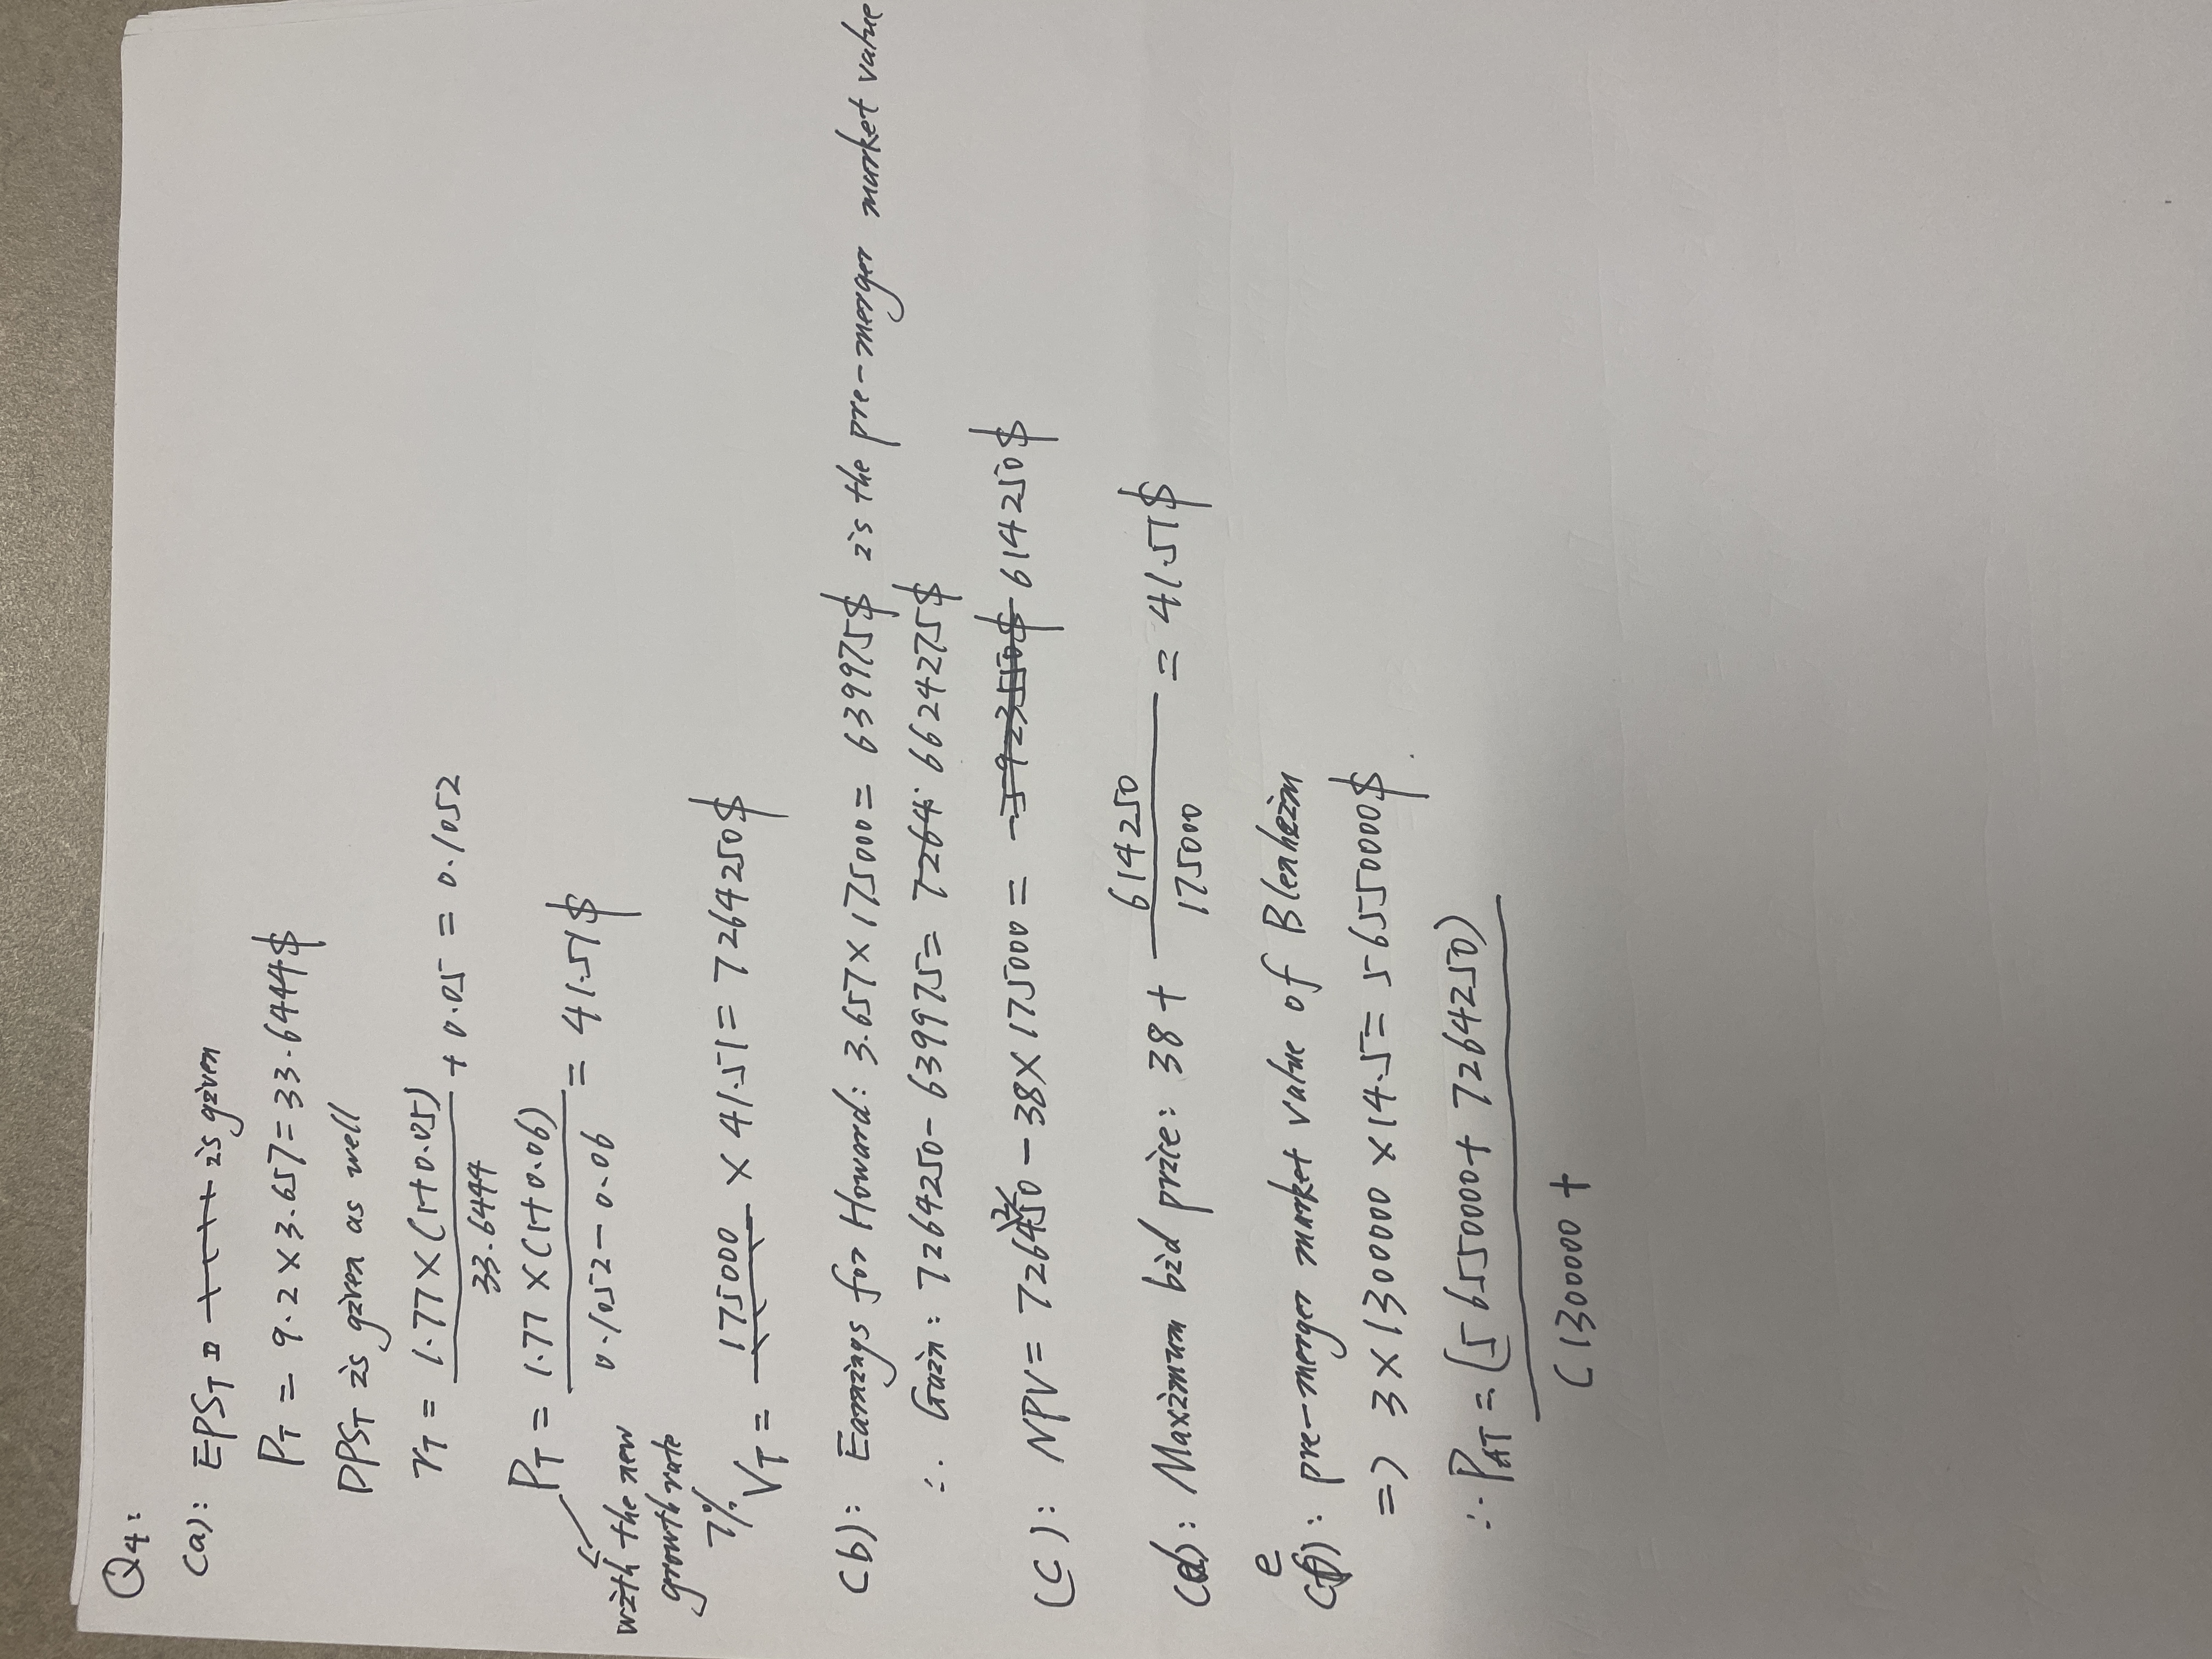 Q4:
(a): EPS_T = is given
P_T = 9.2 × 3.657 = 33.6444$
DPS_T is given as well
r_T = 1.77 × (1+0.05) / 33.6444 + 0.05 = 0.1052
P_T = 1.77 × (1+0.06) / 0.1052 - 0.06 = 41.51$
with the new
growth rate
7%
V_T = 175000 × 41.51 = 7264250$
(b): Earnings for Howard: 3.657 × 175000 = 639975$ is the pre-merger market value
∴ Gain: 7264250 - 639975 = 7264. 6624275$
(c): NPV = 7264250 - 38 × 175000 = 614250$
(d): Maximum bid price: 38 + 614250 / 175000 = 41.51$
(e): pre-merger market value of Blenheim
=> 3 × 1300000 × 14.5 = 56550000$
∴ P_AT = (56550000 + 7264250)
(1300000 +